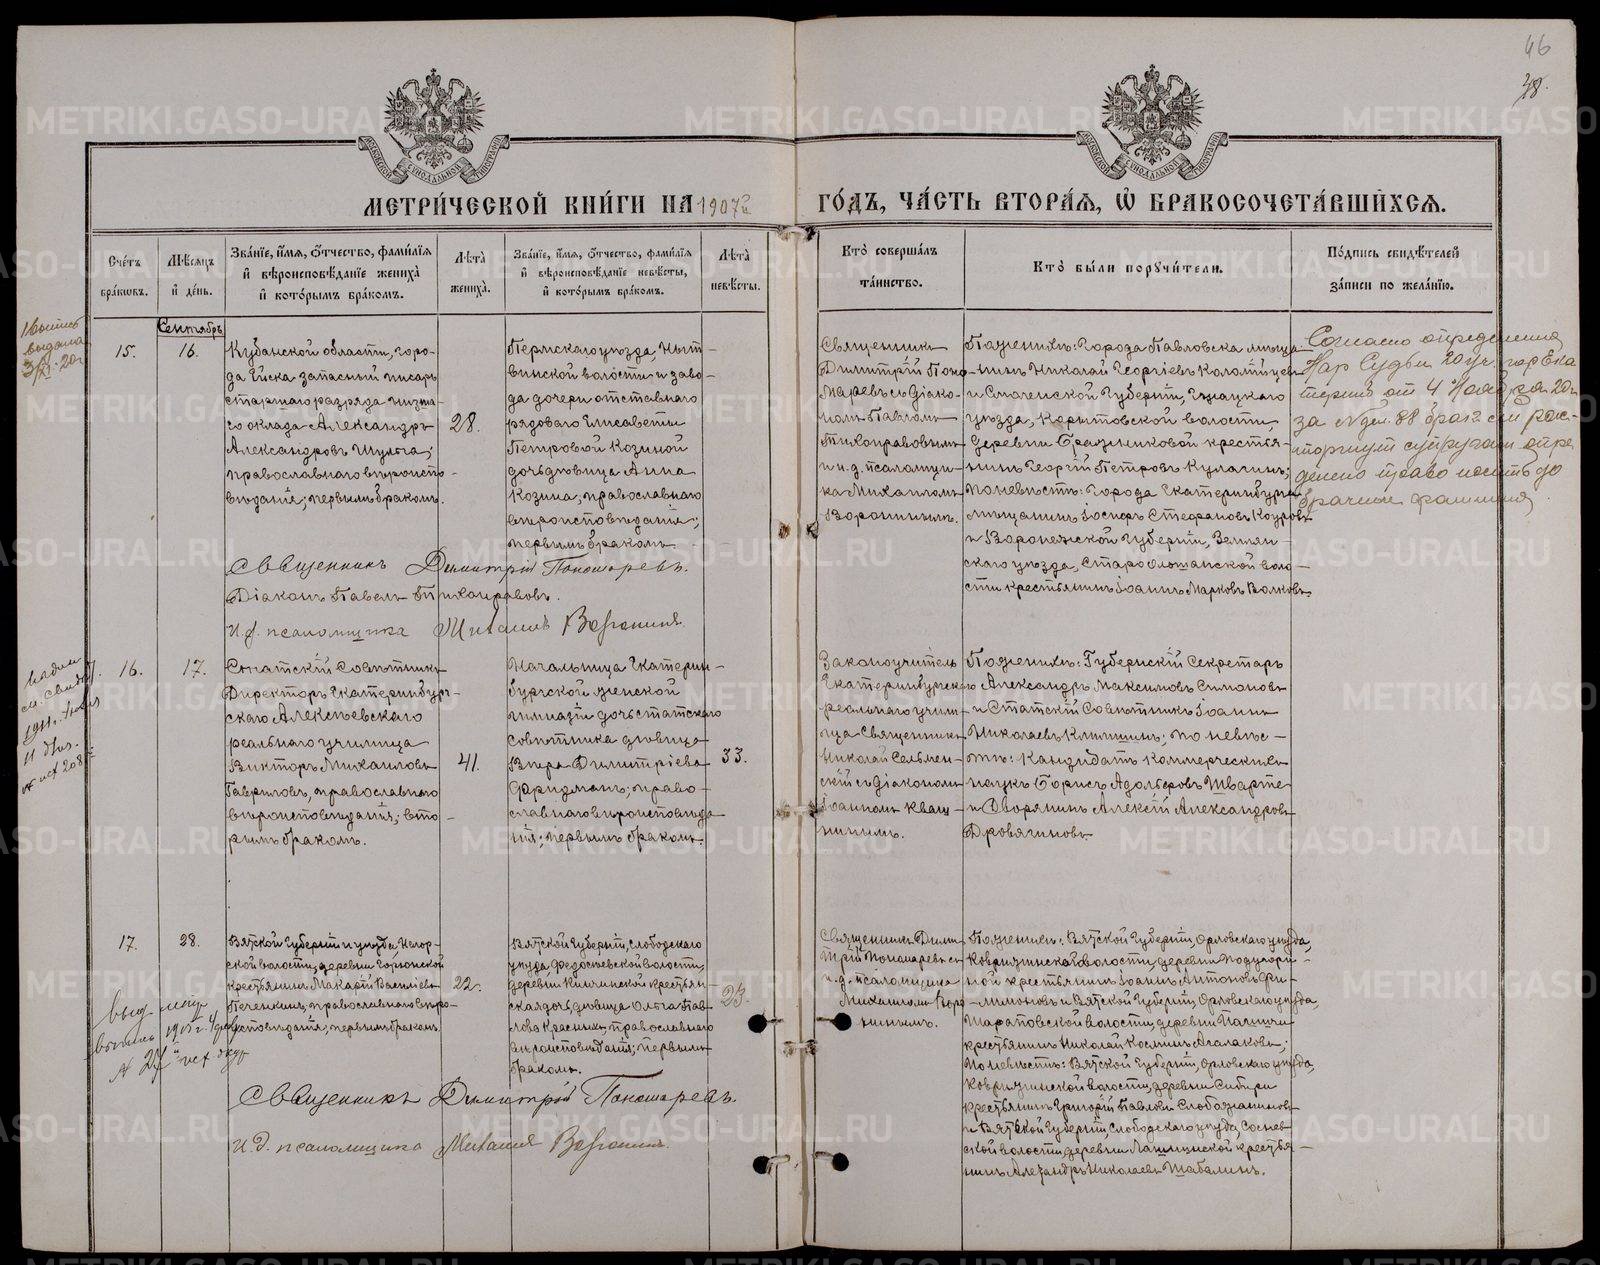 46
38.
МОСКОВСКОЙ СИНОДАЛЬНОЙ ТИПОГРАФІИ
МОСКОВСКОЙ СИНОДАЛЬНОЙ ТИПОГРАФІИ
МЕТРИ́ЧЕСКОЙ КНИ́ГИ НА 1907й ГО́ДЪ, ЧА́СТЬ ВТОРА́Я, Ѡ БРАКОСОЧЕТА́ВШИХСЯ.
Сче́тъ бра́кѡвъ.
Мѣ́сяцъ и де́нь.
Зва́нїе, и́мя, о́тчество, фами́лїя и вѣроисповѣ́данїе жениха̀ и кото́рымъ бра́комъ.
Лѣ́та жениха̀.
Зва́нїе, и́мя, о́тчество, фами́лїя и вѣроисповѣ́данїе невѣ́сты, и кото́рымъ бра́комъ.
Лѣ́та невѣ́сты.
Кто̀ соверша́лъ та́инство.
Кто̀ бы́ли поручи́тели.
По́дпись свидѣ́телей за́писи по жела́нїю.
Сентябрь
выдана
15.
16.
Кубанской области, горо-
да Ейска запасный писарь
старшаго разряда низша-
го оклада Александръ
Александровъ Шульга;
православнаго вѣроиспо-
вѣданія; первымъ бракомъ.
28.
Пермскаго уѣзда, Ныт-
винской волости и заво-
да дочери отставнаго
рядоваго Елисаветы
Петровой Козиной
дочь дѣвица Анна
Козина, православнаго
вѣроисповѣданія;
первымъ бракомъ.
Священникъ
Димитрій Поно-
маревъ съ діако-
номъ Павломъ
Тихонравовымъ
и и.д. псаломщи-
ка Михаиломъ
Воронинымъ.
По женихѣ: Города Павловска мѣща-
нинъ Николай Георгіевъ Коломѣйцевъ
и Смоленской губерніи, Гжатскаго
уѣзда, волости,
деревни крестья-
нинъ Георгій Петровъ Кулагинъ;
по невѣстѣ: Города Екатеринбурга
мѣщанинъ Іосифъ Стефановъ
и Воронежской губерніи, Землян-
скаго уѣзда, Староольшанской воло-
сти крестьянинъ Іоаннъ Марковъ Волковъ.
Согласно определения
Нар Судьи 20 уч. гор Ека
терин от 4 Ноября 20г.
за № дел. 88 брак сей рас-
торгнут супругам опре
делено право носить до
брачные фамилии
Священникъ Димитрій Пономаревъ.
Діаконъ Павелъ Тихонравовъ.
И.д. псаломщика Михаилъ Воронинъ.
16.
17.
Статскій Совѣтникъ
Директоръ Екатеринбург-
скаго Алексѣевскаго
реальнаго училища
Викторъ Михаиловъ
Гавриловъ, православнаго
вѣроисповѣданія; вто-
рымъ бракомъ.
41.
Начальница Екатерин-
бургской женской
гимназіи дочь статскаго
совѣтника дѣвица
Вѣра Димитріева
Фридманъ; право-
славнаго вѣроисповѣда-
нія; первымъ бракомъ.
33.
Законоучитель
Екатеринбургскаго
реальнаго учили-
ща Священникъ
Николай Сельмен-
скій съ діакономъ
Іоанномъ Кваш-
нинымъ.
По женихѣ: Губернскій Секретарь
Александръ Максимовъ Симоновъ
и Статскій Совѣтникъ Іоаннъ
Николаевъ Клипшинъ; по невѣс-
тѣ: Кандидатъ Коммерческихъ
наукъ Борисъ Адольфовъ Шварте
и Дворянинъ Алексій Александровъ
Дровягиновъ.
17.
28.
Вятской губерніи и уѣзда,
ской волости, деревни
крестьянинъ Макарій Васильевъ
православнаго вѣро-
исповѣданія; первымъ бракомъ.
22.
Вятской губерніи, Слободскаго
уѣзда, Ѳедосѣевской волости,
деревни крестьян-
ская дочь дѣвица Ольга Пав-
лова православнаго
вѣроисповѣданія; первымъ
бракомъ.
23.
Священникъ Дими-
трій Пономаревъ съ
и.д. псаломщика
Михаиломъ Воро-
нинымъ.
По женихѣ: Вятской губерніи, Орловскаго уѣзда,
волости, деревни
крестьянинъ Іоаннъ Антоновъ Фи-
лимоновъ и Вятской губерніи, Орловскаго уѣзда,
Шараповской волости, деревни
крестьянинъ Николай Косминъ Агалаковъ;
по невѣстѣ: Вятской губерніи, Орловскаго уѣзда,
волости, деревни Сибири
крестьянинъ Григорій Павловъ Слобожаниновъ
и Вятской губерніи, Слободскаго уѣзда,
ской волости, деревни крестья-
нинъ Александръ Николаевъ Шабалинъ.
Священникъ Димитрій Пономаревъ.
и.д. псаломщика Михаилъ Воронинъ.
METRIKI.GASO-URAL.RU